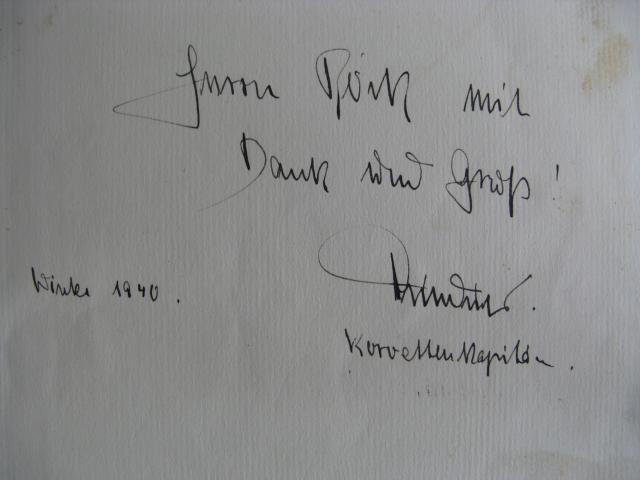 Herrn Röck mit
Dank und Gruß!
1940.
Korvettenkapitän.